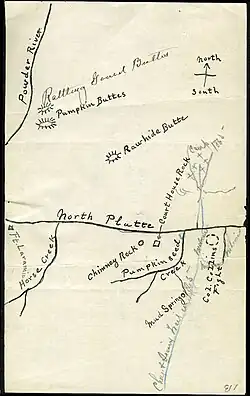 Powder River
Rattling Gourd Buttes
Pumpkin Buttes
North
South
Rawhide Butte
Court House Rock
North Platte
Ft. Laramie
Horse Creek
Chimney Rock
Pumpkin seed
Creek
Mud Springs
Col. Collins
Fight